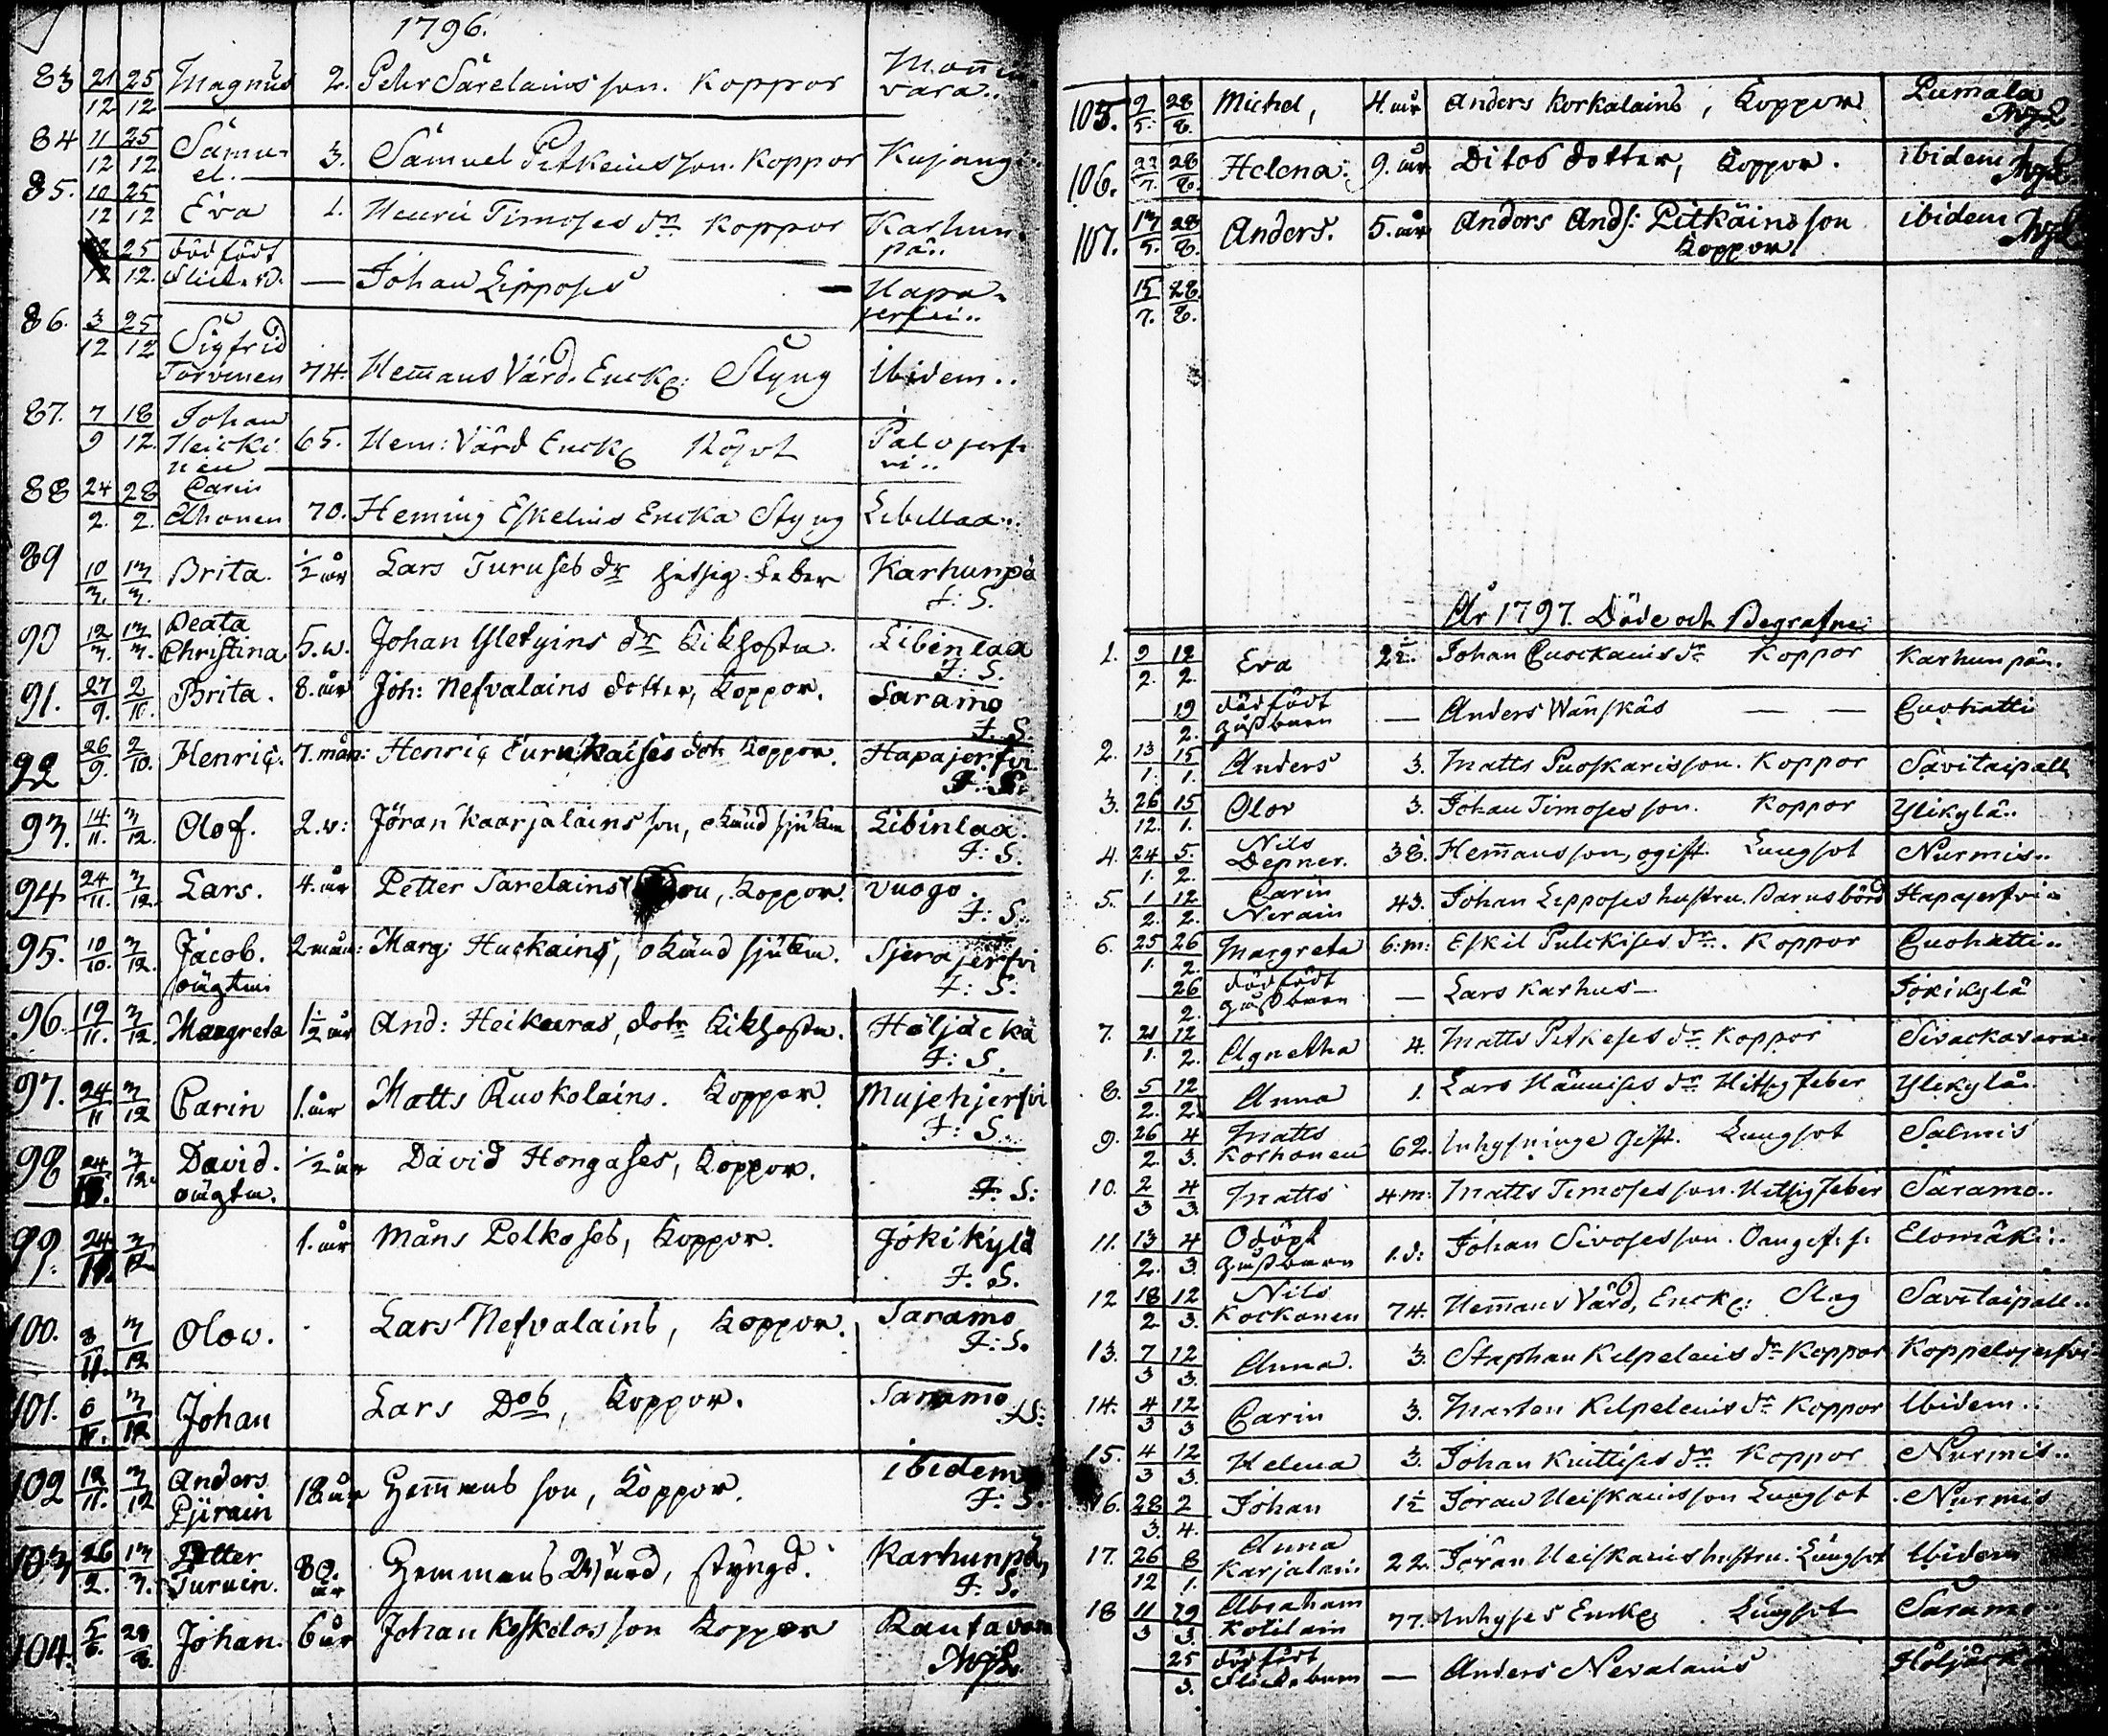 1796.
83 21/12 25/12 Magnus 2. Pehr Särelains son. Koppor Mann vara..
84 11/12 25/12 Samu- el. 3. Samuel Pitkeins son. Koppor Kujang
85. 10/12 25/12 Eva 1. Henric Timoses dr Koppor Karhun pä..
12 25/12 död född — Johan Lipposes — Hapa- jerfvi..
86. 3/12 25/12 Sigfrid Torvinen 74. Hem̄ans Värd. Enckl: Styng Ibidem..
87. 7/9 18/12 Johan Heicki nen 65. Hem: Värd Enckl Palojerf vi..
88 24/2. 28/2. Carin Ahonen 70. Heming Eskelins Encka Styng Libellaa..
89 10/3. 13/3. Brita. ½ år Lars Turuses dr hetsig feber Karhunpä F: S.
90 12/3. 13/3. Beata Christina 5. w. Johan Yletyins dr Kikhosta. Libinlax F: S.
91. 27/9. 2/10. Brita. 8. år Joh: Nefvalains dotter, Koppor. Saramo F. S.
92 26/9. 2/10. Henric. 7. mån: Henric Eurukaises dotr Koppor. Hapajerfvi F: S.
93. 14/11. 3/12. Olof. 2. w: Jöran Kaarjalains son, okänd sjukm Libinlax. F: S.
94 24/11. 3/12. Lars. 4. år Petter Sarelains son, Koppor. Vuogo. F: S.
95. 10/10. 3/12. Jacob. oägta 2 mån: Marg: Huckains, okänd sjukm. Sjerajerfvi F: S.
96. 19/11. 3/12. Margreta 1½ år And: Heikuras, dotr Kikhosta. Höljäckä F: S.
97. 24/11 3/12 Carin 1. år Matts Kuokolains. Koppor. Mujehjerfvi F: S.
98 24 3/12. David. oägta. ½ år David Hongases, Koppor. F: S:
99. 24 3/12 1. år Måns Polkoses, Koppor. Jokikylä F: S.
100. 8/11. 3/12 Olow. Lars Nefvalains, Koppor. Saramo F: S.
101. 6/11. 3/12 Johan Lars Dos, Koppor. Saramo
102 12/11. 3/12 Anders Pjirain 18. år Hem̄ans son, Koppor. ibidem F: S.
103 26/2. 13/3. Petter Turuin. 80. år Hemmans Wärd, styngd. Karhunpä, F: S.
104. 5/6. 28/8. Johan. 6 år Johan Koskelos son Koppor Rautavara
105. 2/5. 28/8. Michel, 4. år Anders Korkalains, Koppor Pumala
106. 28/8. Helena. 9. år Ditos dotter, Koppor. ibidem
107. 13/5. 28/8. Anders. 5. år Anders Ands: Pitkäins son Koppor. ibidem
15/7. 28/8.
År 1797. Döde och Begrafne.
1. 9/2. 12/2. Eva 2½. Johan Cuockains dr Koppor Karhunpää.
— 19/2. dödfödt Gossbarn — Anders Wänskäs — — Cuohatti
2. 13/1. 15/1. Anders 3. Matts Puoskaris son. Koppor Savitaipall
3. 26/12. 15/1. Olov 3. Johan Timoses son. Koppor Ylikylä..
4. 24/1. 5./2. Nils Depner. 38. Hem̄ans son, ogift. Lungsot Nurmis..
5. 1/2. 12/2. Carin Nerain 43. Johan Lipposes hustru. Barnsbörd Hapajerfvi
6. 25/1. 26/2. Margreta 6: m: Eskil Pulckises dr. Koppor Cuohatti..
— 26/2. dödfödt gossbarn — Lars Karhus — Jokikylä
7. 21/1. 12/2. Agnetha 4. Matts Pitkeses dr Koppor Sivackavara..
8. 5/2. 12/2. Anna 1. Lars Hännises dr Hitsig feber Ylikylä..
9. 26/2. 4/3. Matts Korhonen 62. Inhysninge Gift. Lungsot Salmis
10. 2/3 4/3. Matts 4. m: Matts Timoses son. Hitsig feber Saramo..
11. 13/2. 4/3. Odöpt Gossbarn 1. d: Johan Sivoses son. Oangif. s: Elomäki..
12 18/2. 12/3. Nils Kockonen 74. Hem̄ans Värd, Enckl: Slag Savitaipall..
13. 7/3 12/3. Anna. 3. Staphan Kilpeleins dr Koppor Koppelojerfvi
14. 4/3 12/3 Carin 3. Marten Kilpeleins dr Koppor Ibidem..
15. 4/3 12/3. Helena 3. Johan Kuittises dr Koppor Nurmis..
16. 28/3. 2/4. Johan 1½ Jöran Heiskains son Lungsot Nurmis
17. 26/12 8/1. Anna Karjalain 22. Jöran Heiskains hustru. Lungsot Ibidem
18 11/3 29/3. Abraham Kotilain 77. Inhyses Enckl Lungsot Saramo..
— 25/3. dödfödt flickebarn — Anders Nevalains Höljäckä